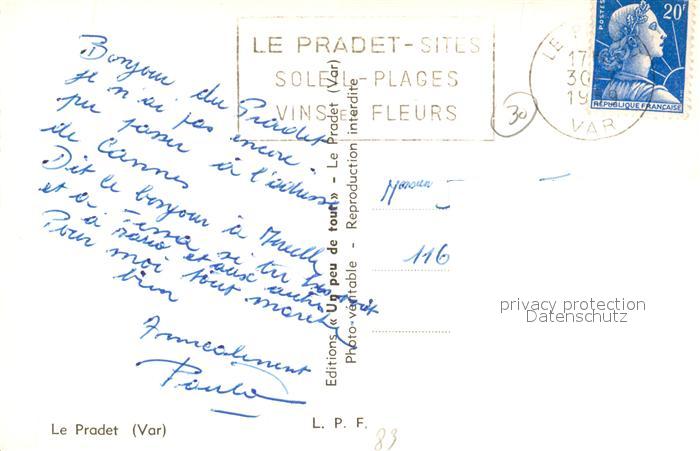 LE PRADET-SITES
SOLEIL-PLAGES
VINS ET FLEURS
LE P
17
30
19
VAR
POSTES
20F
RÉPUBLIQUE FRANÇAISE
30
Bonjour du Pradet
je n'ai pas encore
pu passer à l'adresse
de Cannes
Dit le bonjour à
et à si tu les voit
à et aux autres
Pour moi tout marche
bien
Amicalement
Paula
Editions «Un peu de tout» - Le Pradet (Var)
Photo-véritable - Reproduction interdite
Monsieur
116
privacy protection
Datenschutz
Le Pradet (Var)
L. P. F.
83